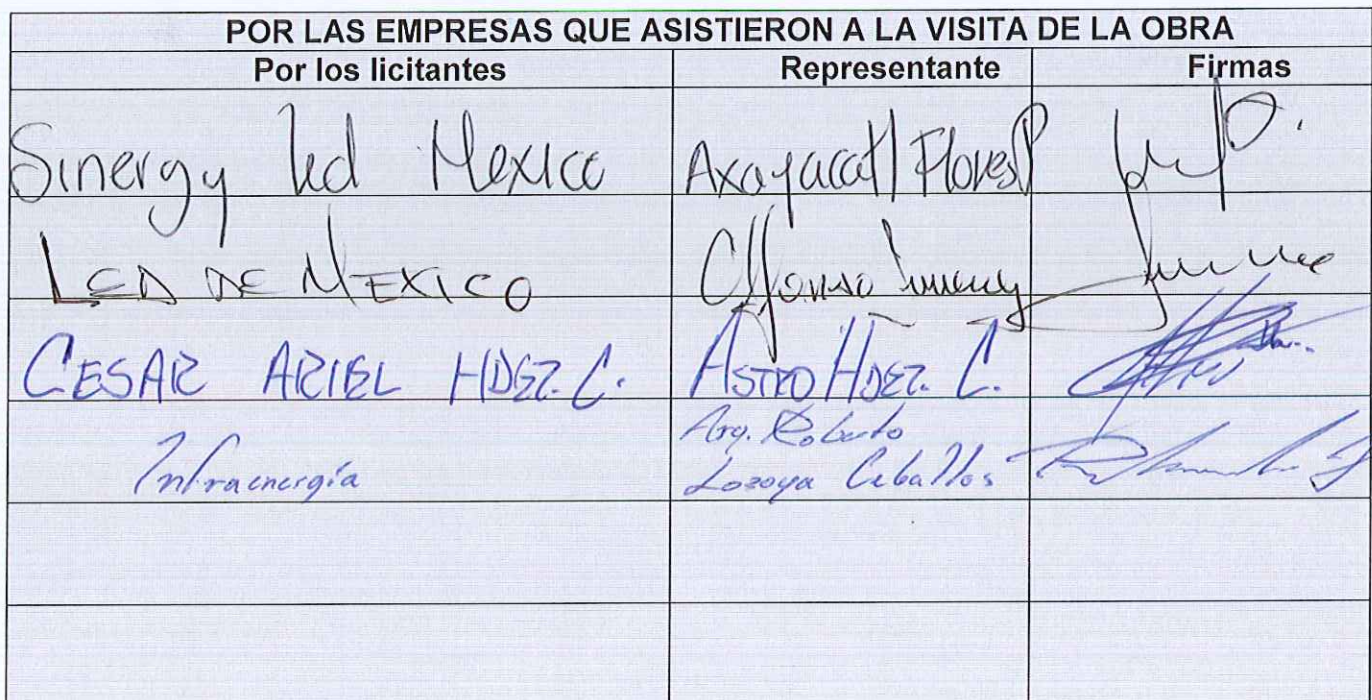 POR LAS EMPRESAS QUE ASISTIERON A LA VISITA DE LA OBRA
Por los licitantes Representante Firmas
Sinergy led Mexico Axayacatl Flores P
LED DE MEXICO Alfonso Jimenez
CESAR ARIEL HDEZ. C. ASTRO HDEZ. C.
Arq. Roberto
Infraenergía Lozoya Ceballos